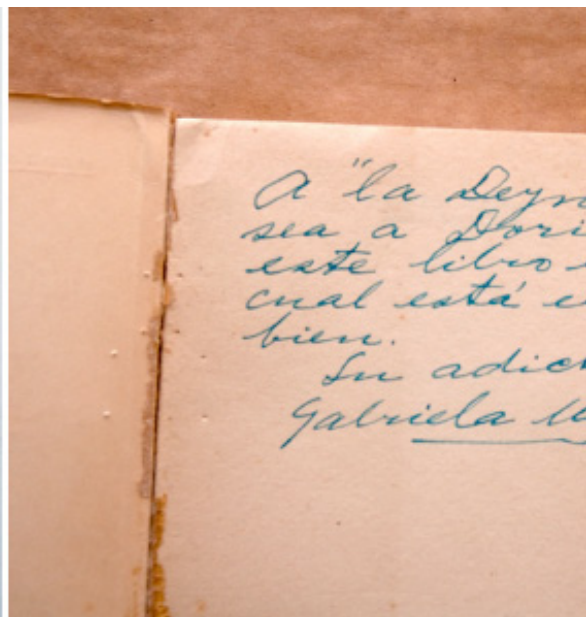 A "la Deyn
sea a Dori
este libro
cual está e
bien.
Su adic
Gabriela